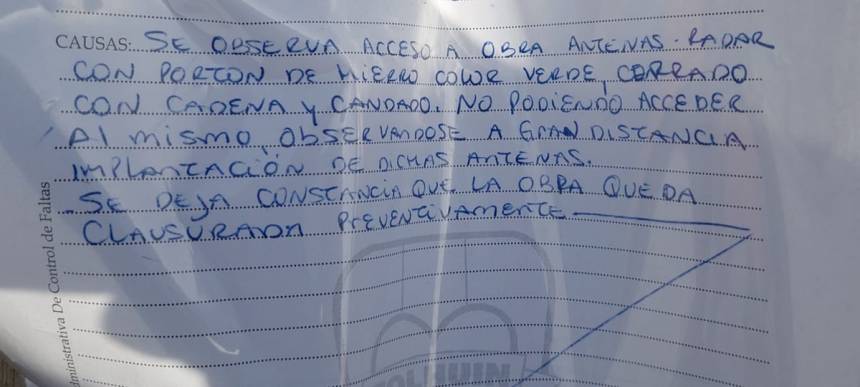 CAUSAS: SE OBSERVA ACCESO A OBRA ANTENAS-RADAR
CON PORTON DE HIERRO COLOR VERDE, CERRADO
CON CADENA Y CANDADO. NO PODIENDO ACCEDER
Al mismo, ObSERVANDOSE A GRAN DISTANCIA
IMPLANTACIÓN DE DICHAS ANTENAS.
SE DEJA CONSTANCIA QUE LA OBRA QUEDA
CLAUSURADA PREVENTIVAMENTE
ministrativa De Control de Faltas
OLHUIN